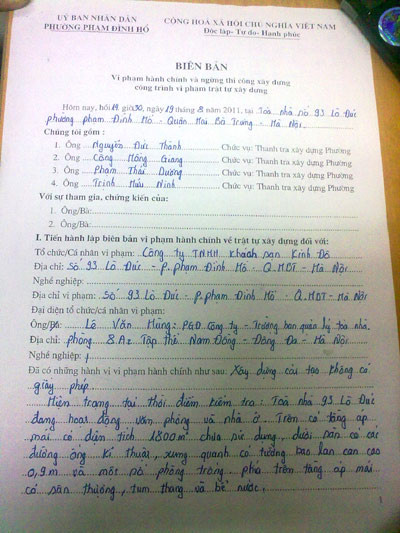 UỶ BAN NHÂN DÂN
PHƯỜNG PHẠM ĐÌNH HỔ
CỘNG HOÀ XÃ HỘI CHỦ NGHĨA VIỆT NAM
Độc lập- Tự do- Hạnh phúc
BIÊN BẢN
Vi phạm hành chính và ngừng thi công xây dựng
công trình vi phạm trật tự xây dựng
Hôm nay, hồi 14 giờ 30, ngày 19 tháng 8 năm 2011, tại Toà nhà số 93 Lò Đúc
phường phạm Đình Hổ - Quận Hai Bà Trưng - Hà Nội.
Chúng tôi gồm :
1. Ông Nguyễn Đức Thành Chức vụ: Thanh tra xây dựng Phường
2. Ông Công Hồng Giang Chức vụ: Thanh tra xây dựng Phường
3. Ông Phạm Thái Dương Chức vụ: Thanh tra xây dựng Phường
4. Ông Trịnh Hữu Ninh Chức vụ: Thanh tra xây dựng Phường
Với sự tham gia, chứng kiến của:
1. Ông/Bà:
2. Ông/Bà:
I. Tiến hành lập biên bản vi phạm hành chính về trật tự xây dựng đối với:
Tổ chức/Cá nhân vi phạm: Công ty TNHH Khách sạn Kinh Đô
Địa chỉ: Số 93 Lò Đúc - P. phạm Đình Hổ - Q. HBT - Hà Nội
Nghề nghiệp:
Địa chỉ vi phạm: Số 93 Lò Đúc - P. phạm Đình Hổ - Q. HBT - Hà Nội
Đại diện tổ chức/cá nhân vi phạm:
Ông/Bà: Lê Văn Hùng: PGĐ Công ty - Trưởng ban quản lý toà nhà.
Địa chỉ: phòng 8 A2 Tập thể Nam Đồng - Đống Đa - Hà Nội
Nghề nghiệp: /
Đã có những hành vi vi phạm hành chính như sau: Xây dựng cải tạo không có
giấy phép
Hiện trạng tại thời điểm kiểm tra: Toà nhà 93 Lò Đúc
đang hoạt động văn phòng và nhà ở. Trên có tầng áp
mái có diện tích 1800m² chưa sử dụng, dưới sàn có các
đường ống kĩ thuật, xung quanh có tường bao lan can cao
0,9m và một số phòng trống. phía trên tầng áp mái
có sân thượng, tum thang và bể nước.